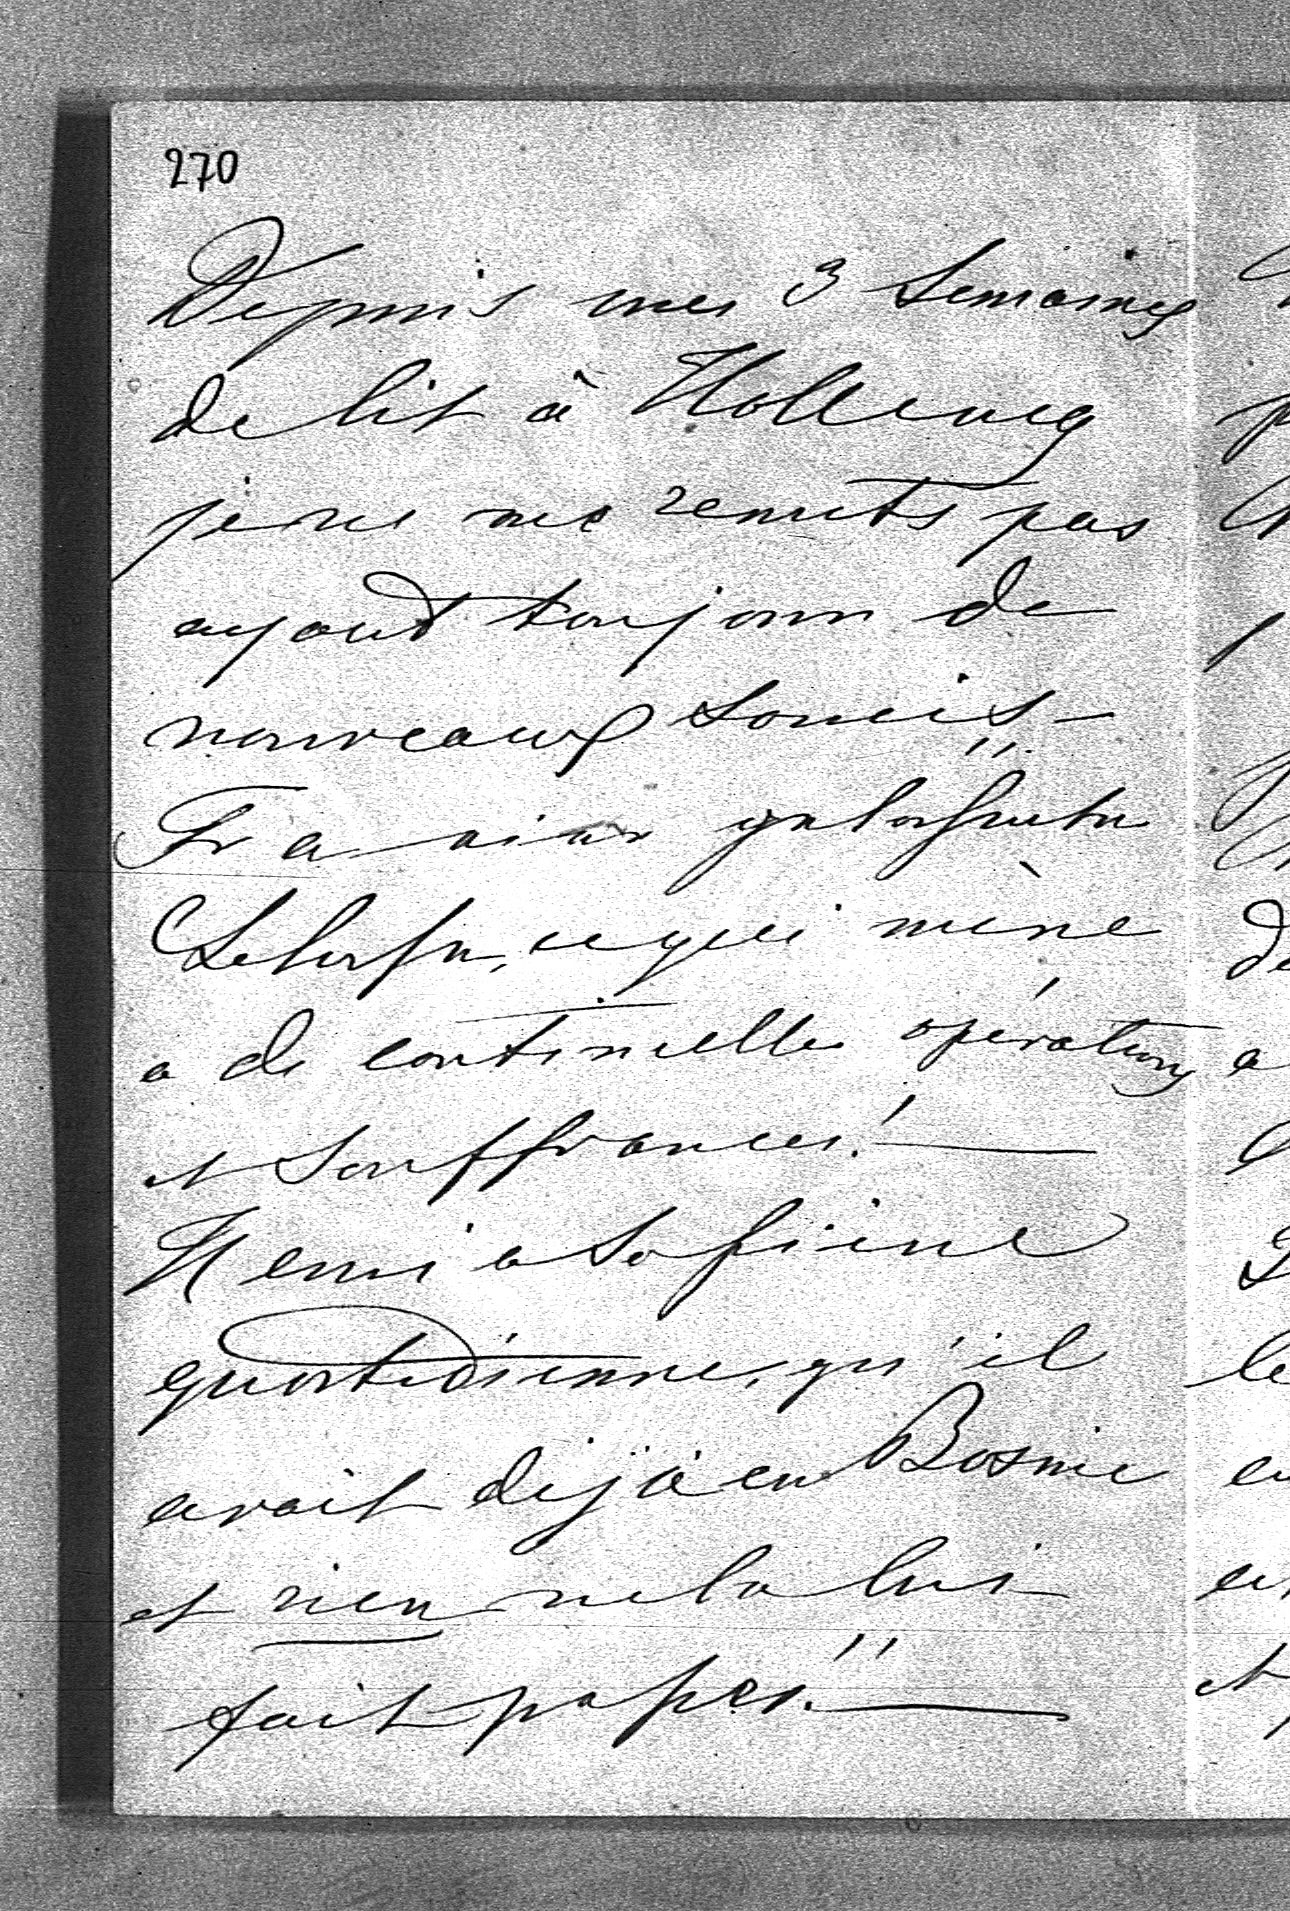 270
Depuis mes 3 semaines
de lit à Hollenegg
je ne me remets pas
ayant toujours de
nouveaux soucis!! –
Fr a
ce qui mène
a de continuelles opérations
et souffrances! –
Henri a sa fièvre
quotidienne, qu'il
avait déjà en Bosnie
et rien ne la lui
fait passer!! –